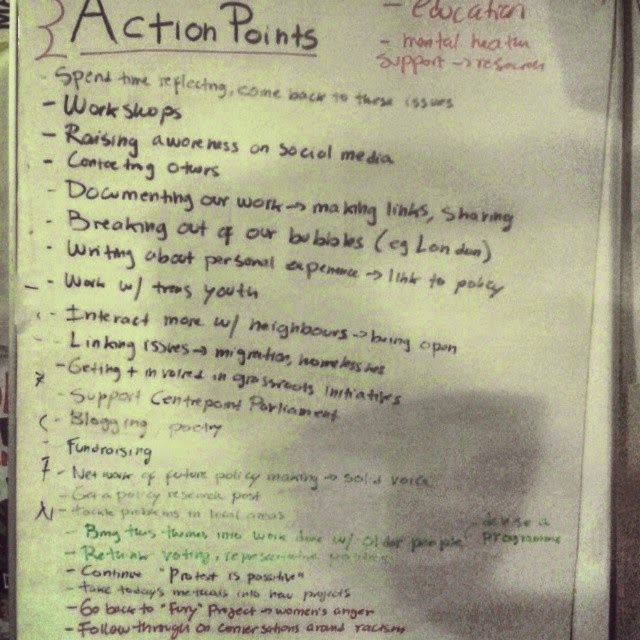 Action Points
- education
- mental health
support → resources
- Spend time reflecting, come back to these issues
- Workshops
- Raising awareness on social media
- Contacting others
- Documenting our work → making links, sharing
- Breaking out of our bubbles (eg London)
- Writing about personal experience → link to policy
- Work w/ trans youth
- Interact more w/ neighbours → being open
- Linking issues → migration, homelessness
- Getting + involved in grassroots initiatives
- Support Centrepoint Parliament
- Blogging, poetry
- Fundraising
- Network of future policy making → solid voice
- Get a policy research post
- tackle problems in local areas
- Bring this themes into work done w/ older people
programme
- Rethink voting, representative
- Continue "Protest is positive"
- take today's methods into new projects
- Go back to "Fury" Project → women's anger
- Follow through on conversations around racism